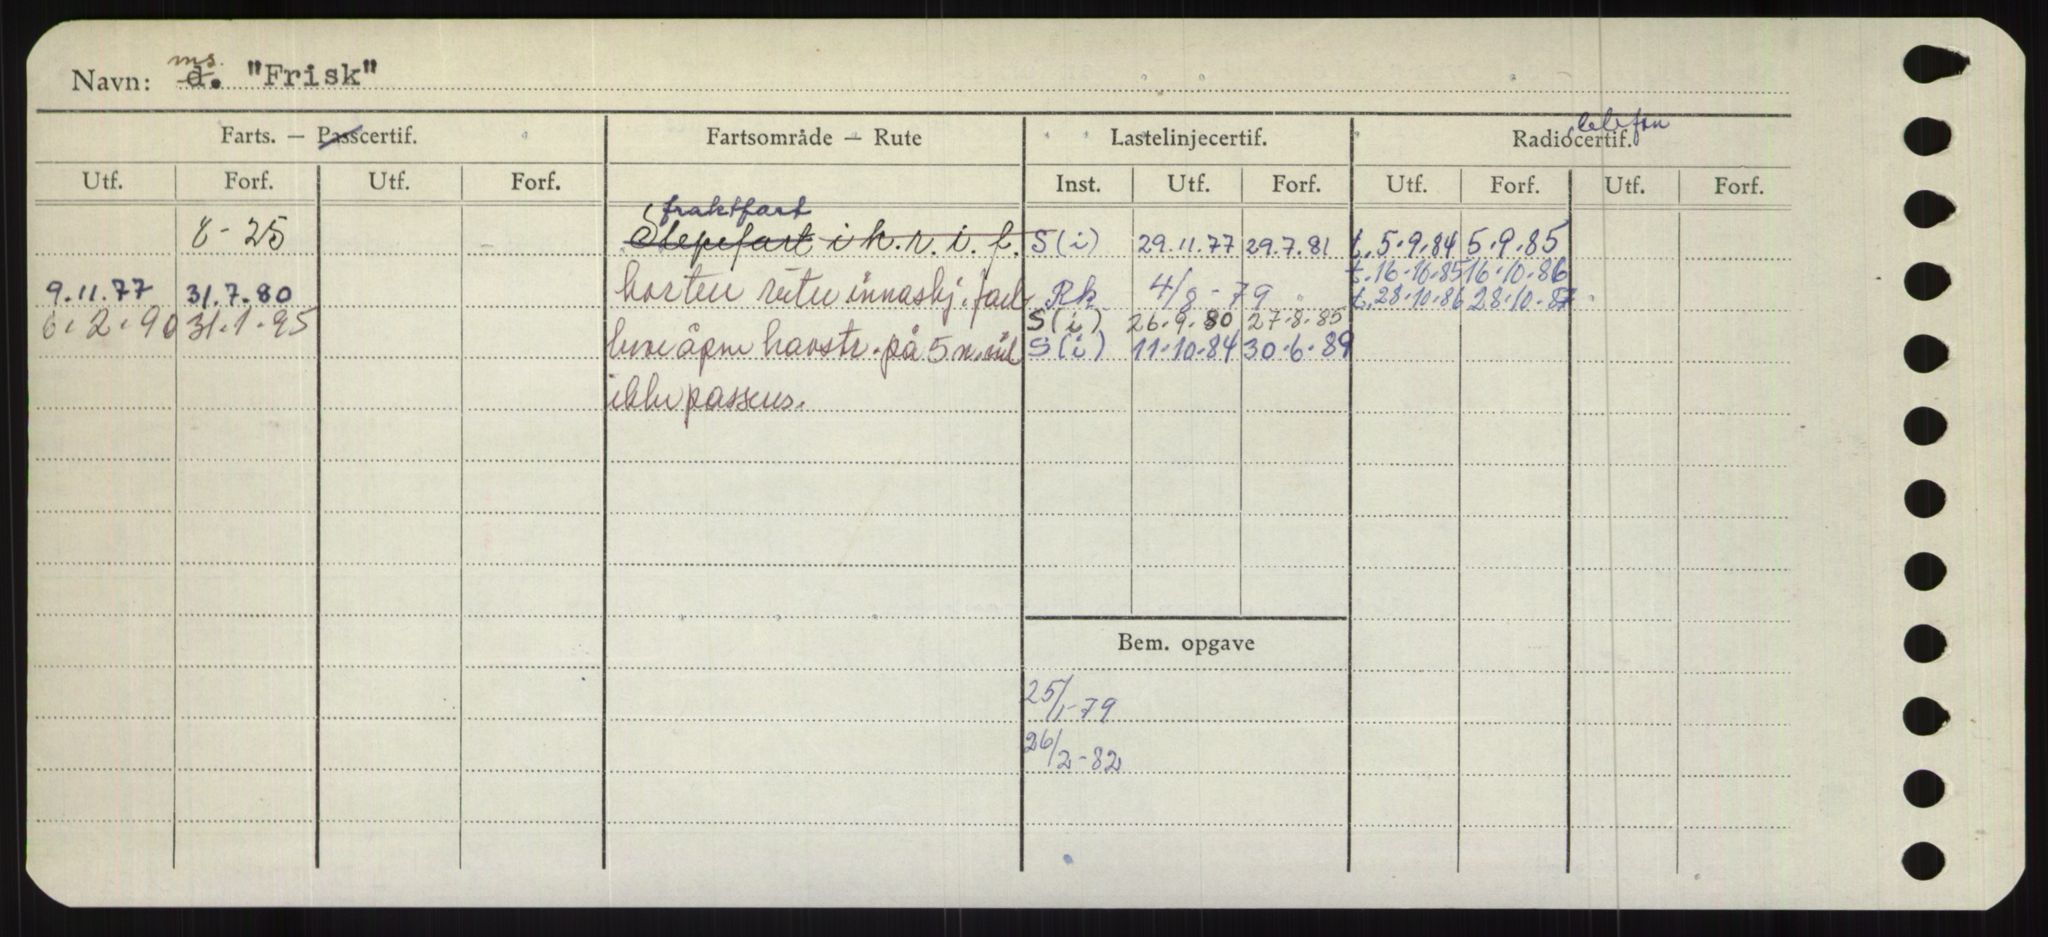 Navn: d. ms. "Frisk"
Farts. — Passcertif. Fartsområde — Rute Lastelinjecertif. Radiocertif. telefon
Utf. Forf. Utf. Forf. Inst. Utf. Forf. Utf. Forf. Utf. Forf.
fraktfart
8-25 Slepefart i k.r.i.f. S(i) 29.11.77 29.7.81 t.5.9.84 5.9.85
t.16.10.85 16.10.86
9.11.77 31.7.80 korteste rute innaskj. farl Rk 4/8-79 t.28.10.86 28.10.87
6.2.90 31.1.95 S(i) 26.9.80 27.8.85
over åpne havstr. på 5 n.mil S(i) 11.10.84 30.6.89
ikke passeres.
Bem. opgave
25/1-79
26/2-82